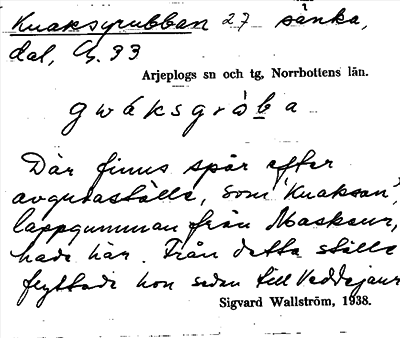 Kuaksgrubban 27 sänka,
dal, G. 93
Arjeplogs sn och tg, Norrbottens län.
gwáksgràba
Där finns spår efter
avgudaställe, som 'Kuaksan',
lappgumman från Maskaur,
hade här. Från detta ställe
flyttade hon sedan till Veddejaur
Sigvard Wallström, 1938.